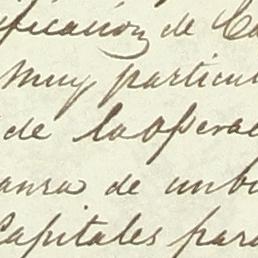 ificación de Ca
muy particul
de laoperac
anza de unbu
Capitales para